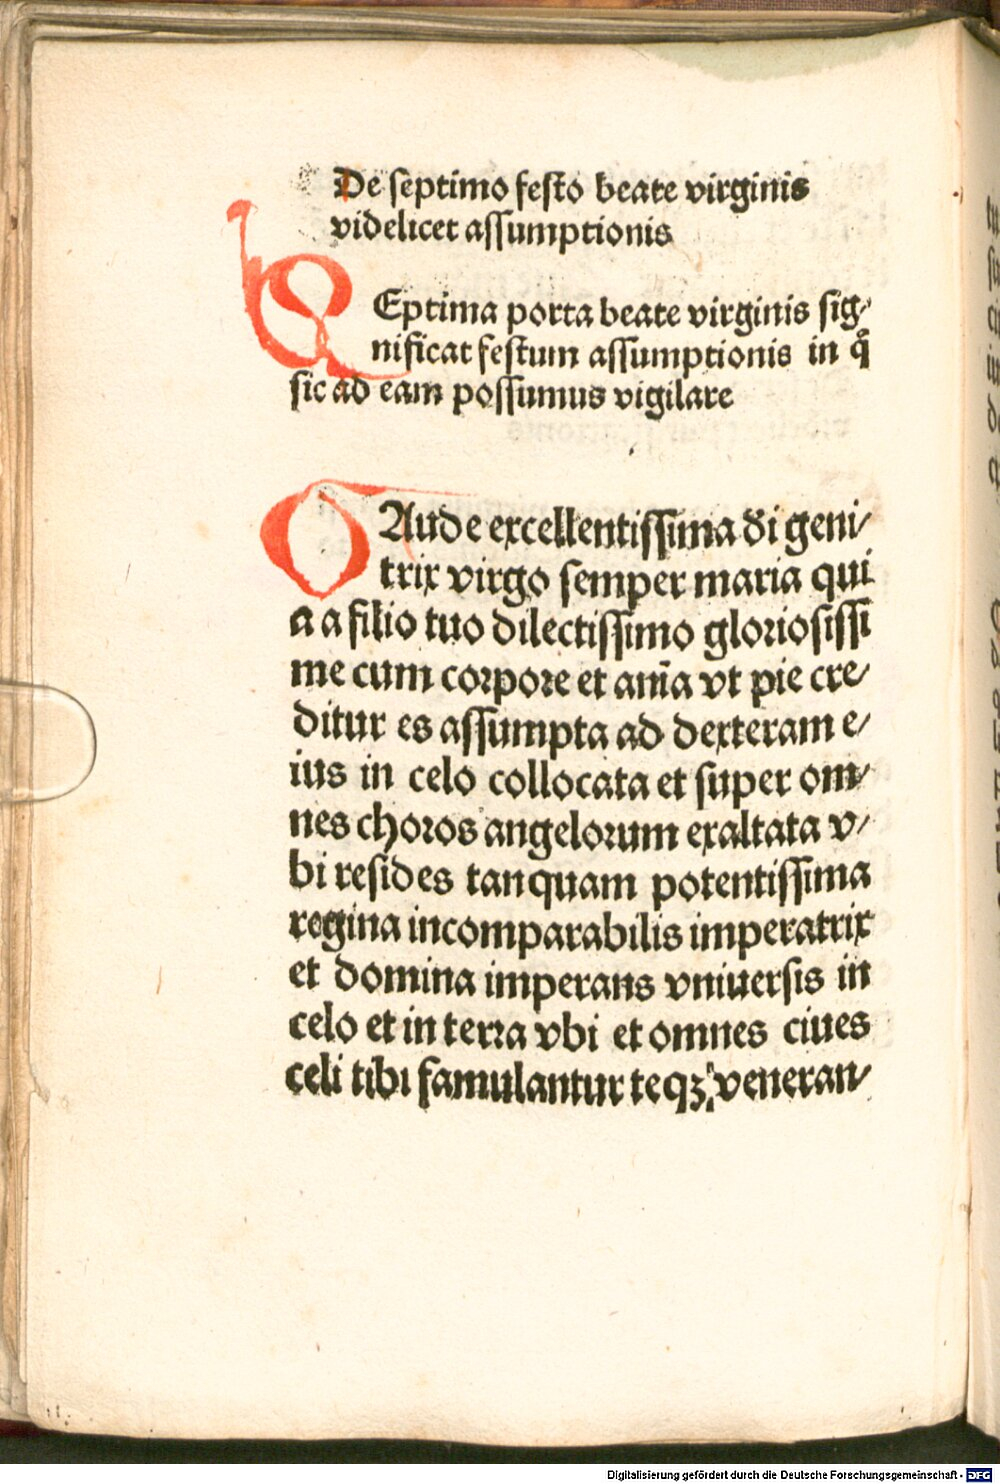 De septimo festo beate virginis
videlicet assumptionis
SEptima porta beate virginis sig⸗
nificat festum assumptionis in qͣ
sic ad eam possumus vigilare
GAude excellentissima di geni⸗
trix virgo semper maria qui
a a filio tuo dilectissimo gloriosissi
me cum corpore et aniã vt pie cre⸗
ditur es assumpta ad dexteram e⸗
ius in celo collocata et super om⸗
nes choros angelorum exaltata v⸗
bi resides tanquam potentissima
regina incomparabilis imperatrix
et domina imperans vniuersis in
celo et in terra vbi et omnes ciues
celi tibi famulantur teqꝫ veneran⸗
Digitalisierung gefördert durch die Deutsche Forschungsgemeinschaft - DFG